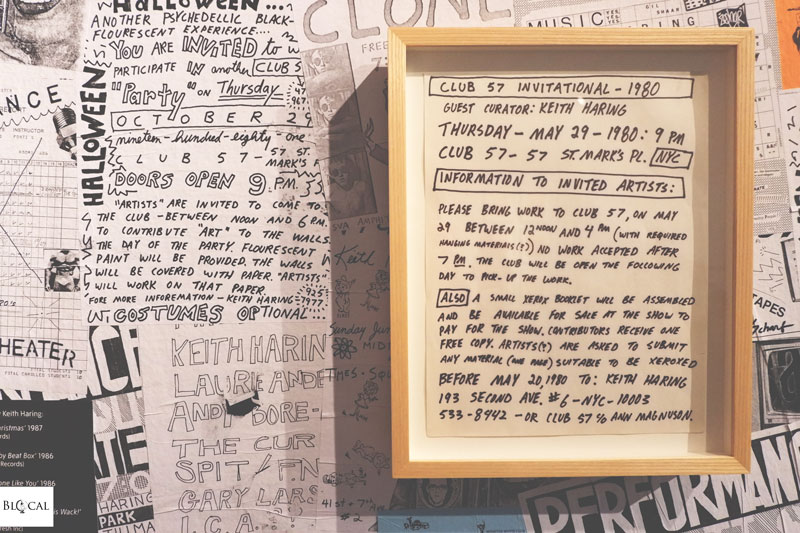 HALLOWEEN...
ANOTHER PSYCHEDELLIC BLACK-
FLOURESCENT EXPERIENCE....
YOU ARE INVITED to
PARTICIPATE IN another CLUB 5
"Party" on Thursday
OCTOBER 29
nineteen-hundred-eighty-one
CLUB 57- 57 ST.
MARK'S P
DOORS OPEN 9 P.M.
HALLOWEEN
"ARTISTS" ARE INVITED TO COME TO
THE CLUB - BETWEEN NOON AND 6 P.M.
TO CONTRIBUTE "ART" TO THE WALLS.
THE DAY OF THE PARTY. FLOURESCENT
PAINT WILL BE PROVIDED. THE WALLS
WILL BE COVERED WITH PAPER. "ARTISTS"
WILL WORK ON THAT PAPER.
FORE MORE INFOREMATION - KEITH HARING 925
7977
COSTUMES OPTIONAL
KEITH HARIN
LAURIE ANDE
ANDY BORE-
THE CUR
SPIT / FN
GARY LARS
I.C.A.
CLONE
FREE
SVA
Keith
Sunday
41st + 7th
#2
MUSIC
CLUB 57 INVITATIONAL - 1980
GUEST CURATOR: KEITH HARING
THURSDAY - MAY 29 - 1980: 9 PM
CLUB 57 - 57 ST. MARK'S PL. NYC
INFORMATION TO INVITED ARTISTS:
PLEASE BRING WORK TO CLUB 57, ON MAY
29 BETWEEN 12 NOON AND 4 PM (WITH REQUIRED
HANGING MATERIALS(?)) NO WORK ACCEPTED AFTER
7 PM. THE CLUB WILL BE OPEN THE FOLLOWING
DAY TO PICK-UP THE WORK.
ALSO A SMALL XEROX BOOKLET WILL BE ASSEMBLED
AND BE AVAILABLE FOR SALE AT THE SHOW TO
PAY FOR THE SHOW. CONTRIBUTORS RECEIVE ONE
FREE COPY. ARTISTS(?) ARE ASKED TO SUBMIT
ANY MATERIAL (ONE PAGE) SUITABLE TO BE XEROXED
BEFORE MAY 20, 1980 TO: KEITH HARING
193 SECOND AVE. #6 - NYC - 10003
533-8942 - OR CLUB 57 c/o ANN MAGNUSON.
TAPES
PERFORMANC
HEATER
HARING
PARK
Keith Haring:
ristmas' 1987
by Beat Box' 1986
Records)
one Like You' 1986
is Wack!'
BLOCAL